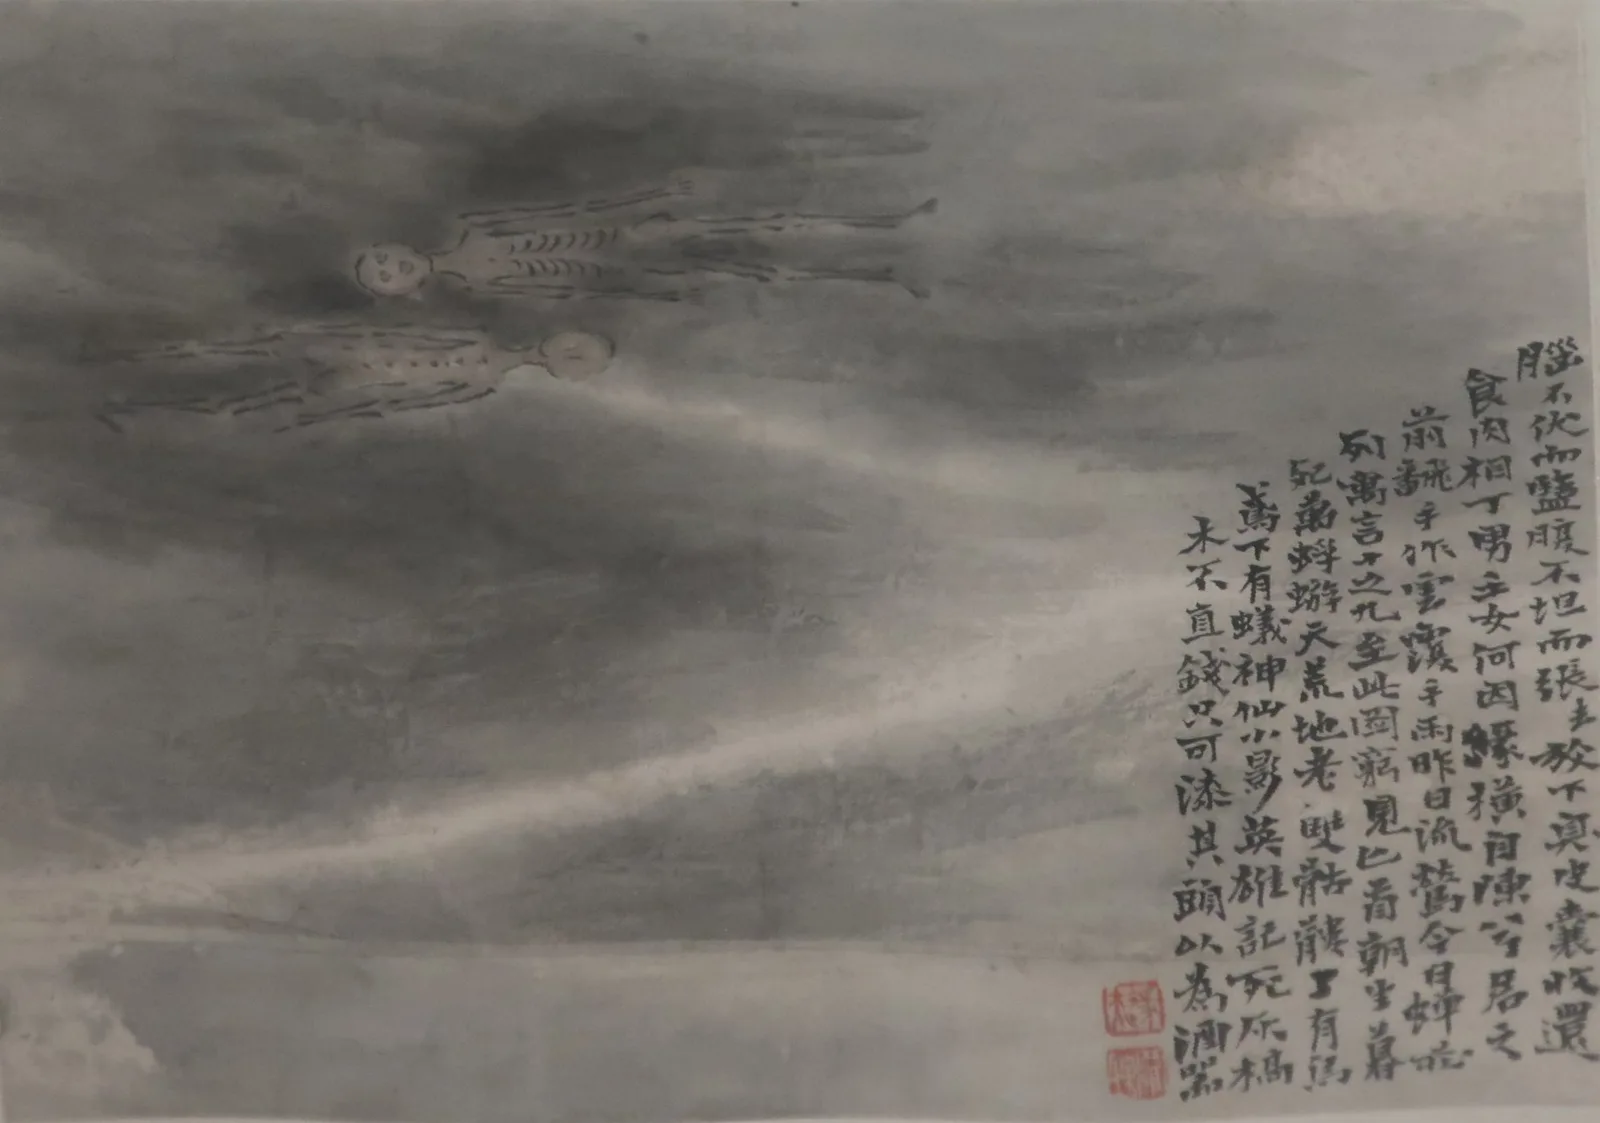 腦不伏而盬腹不坦而張去放下臭皮囊收還
食肉相丁男子女何因緣橫自陳兮君之
前飜手作雲覆手雨昨日流鶯今日蟬
列寓言十之九至此圖窮見匕首朝生暮
死萬蜉蝣天荒地老雙骷髏上有
鳶下有蟻神仙小影英雄記死灰槁
木不直錢只可漆其頭以為酒器